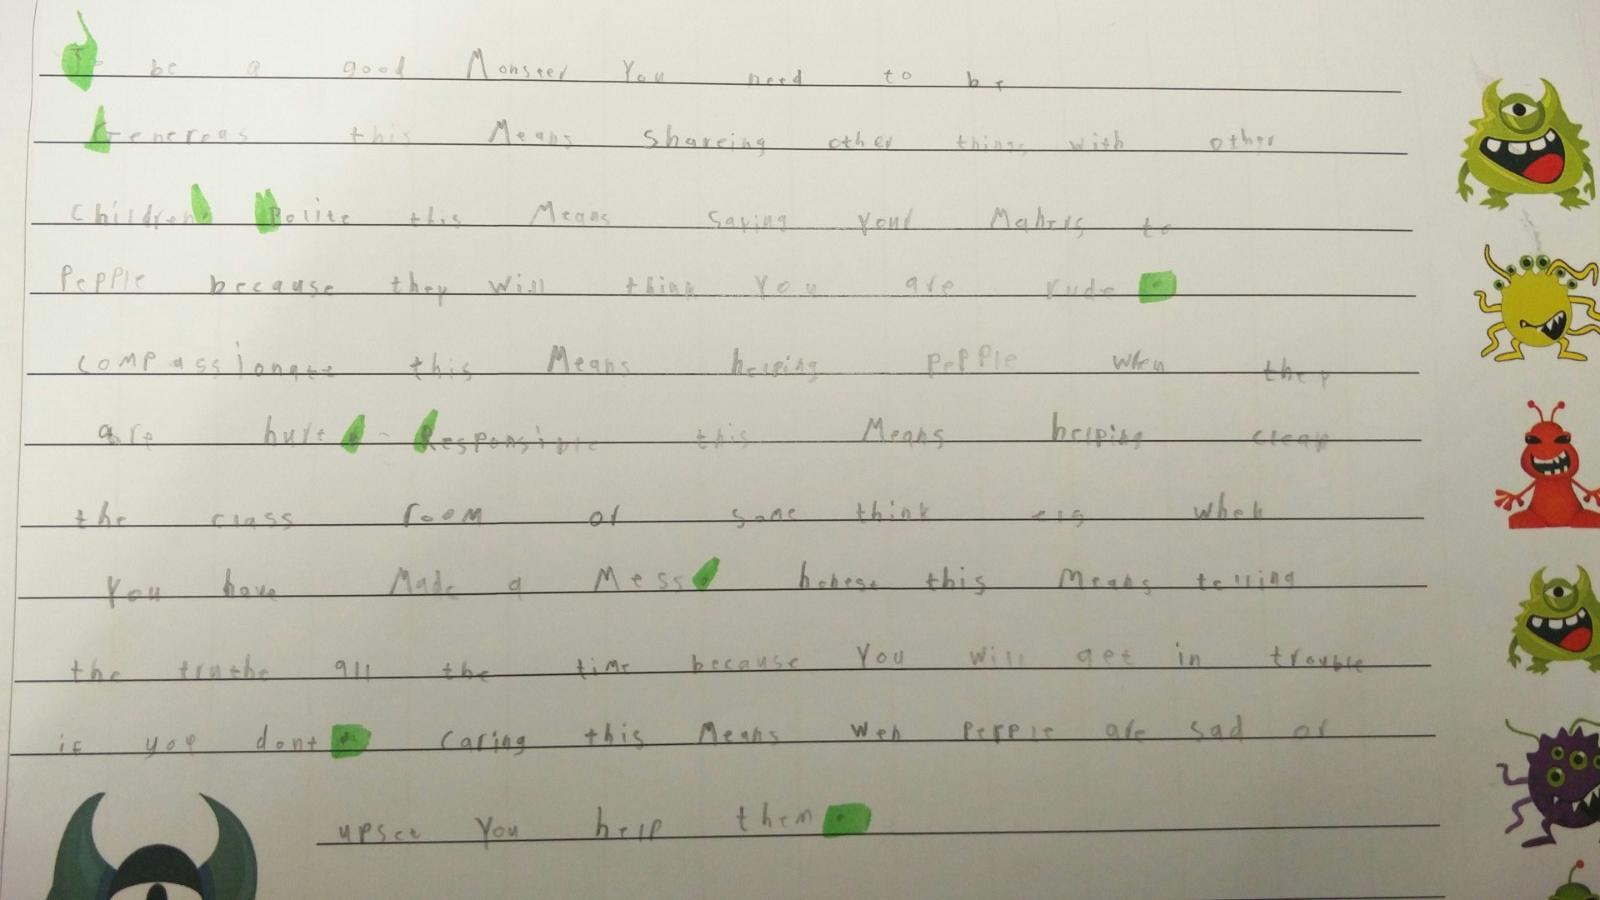 To be a good Monster You need to be
Generoas this Means shareing other things with other
Children. Polite this Means saying your Maners to
Pepple because they will think You are rude.
compassionate this Means helping pepple when they
are hurt. Responsible this Means helping clean
the class room or some think eig when
You have Made a Mess. honest this Means telling
the truthe all the time because You will get in trouble
if you dont. Caring this Means wen Perple are sad or
upset You help them.